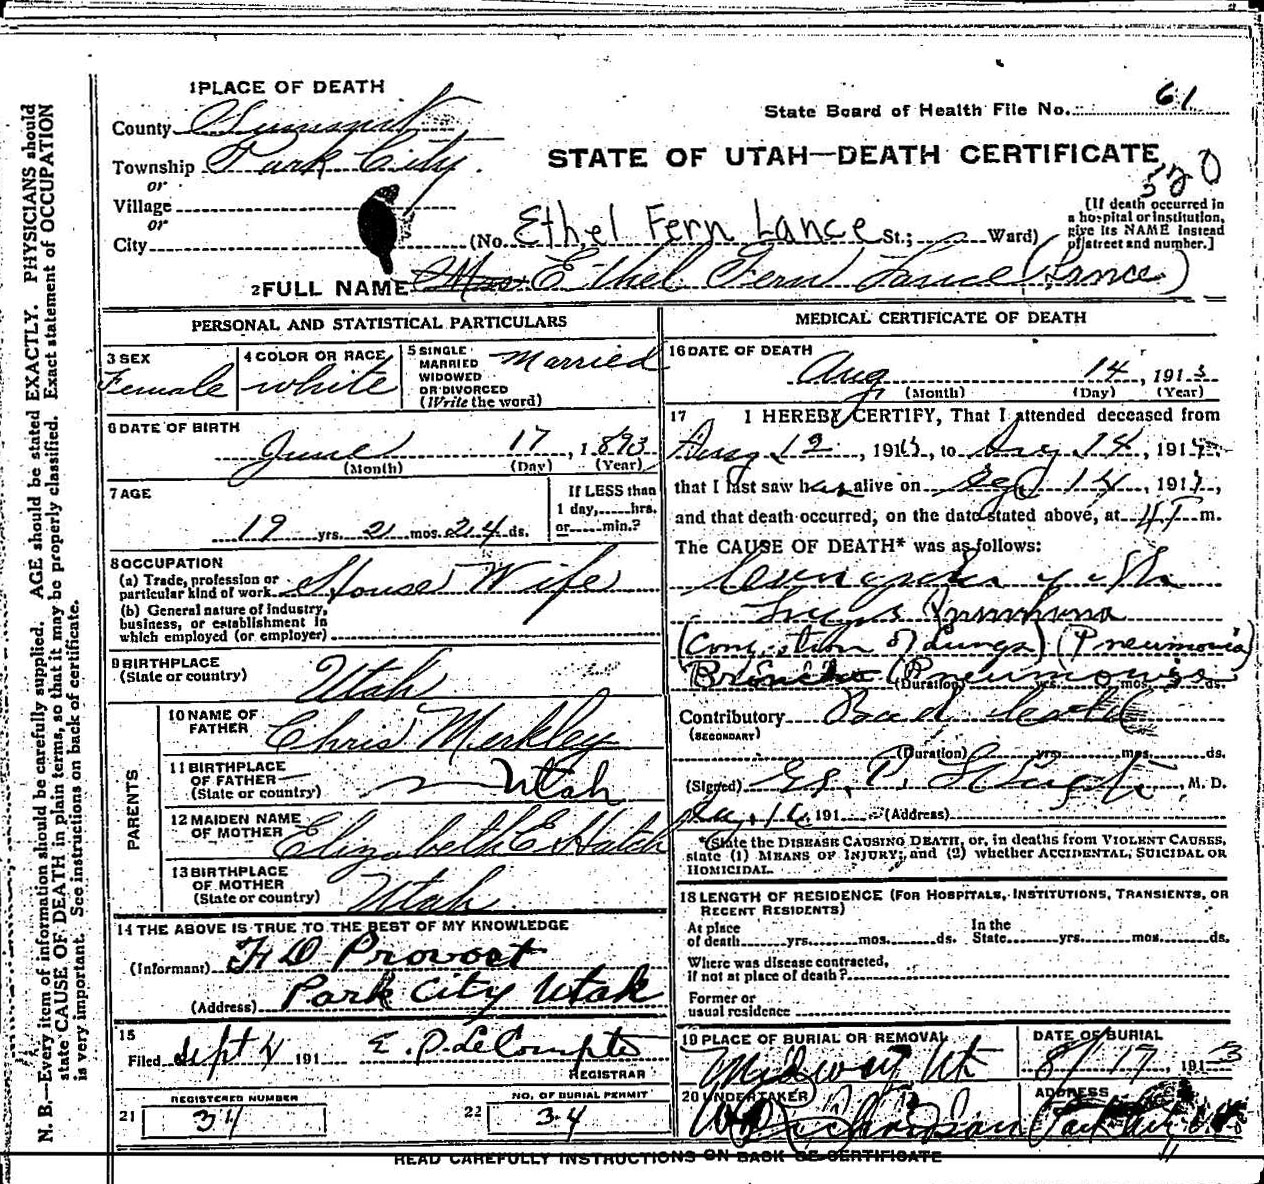 1 PLACE OF DEATH
County Summit
State Board of Health File No. 61
Township Park City
or
STATE OF UTAH—DEATH CERTIFICATE
520
Village
or
City (No. Ethel Fern Lance St.; Ward)
[If death occurred in
a hospital or institution,
give its NAME instead
of street and number.]
2 FULL NAME Mrs Ethel Fern Lance (Lance)
PERSONAL AND STATISTICAL PARTICULARS
3 SEX
Female
4 COLOR OR RACE
white
5 SINGLE
MARRIED
WIDOWED
OR DIVORCED
(Write the word)
Married
6 DATE OF BIRTH
June 17, 1893
(Month) (Day) (Year)
7 AGE
19 yrs. 2 mos. 24 ds.
If LESS than
1 day, hrs.
or min.?
8 OCCUPATION
(a) Trade, profession or
particular kind of work House Wife
(b) General nature of industry,
business, or establishment in
which employed (or employer)
9 BIRTHPLACE
(State or country) Utah
PARENTS
10 NAME OF
FATHER Chris Merkley
11 BIRTHPLACE
OF FATHER
(State or country) Utah
12 MAIDEN NAME
OF MOTHER Elizabeth E Hatch
13 BIRTHPLACE
OF MOTHER
(State or country) Utah
14 THE ABOVE IS TRUE TO THE BEST OF MY KNOWLEDGE
(Informant) H D Provost
(Address) Park City Utah
15
Filed Sept 4 191 E. P. LeCompte
REGISTRAR
REGISTERED NUMBER
21 34
NO. OF BURIAL PERMIT
22 34
MEDICAL CERTIFICATE OF DEATH
16 DATE OF DEATH
Aug 14, 1913
(Month) (Day) (Year)
17 I HEREBY CERTIFY, That I attended deceased from
Aug 12, 1913, to Aug 14, 191
that I last saw her alive on 14, 191,
and that death occurred, on the date stated above, at m.
The CAUSE OF DEATH* was as follows:
(Congestion of Lungs) (Pneumonia)
Broncho (Pneumonia
(Duration) yrs. mos. ds.
Contributory Bad
(SECONDARY)
(Duration) yrs. mos. ds.
(Signed) M. D.
16 191 (Address)
*State the DISEASE CAUSING DEATH, or, in deaths from VIOLENT CAUSES,
state (1) MEANS OF INJURY; and (2) whether ACCIDENTAL, SUICIDAL OR
HOMICIDAL.
18 LENGTH OF RESIDENCE (FOR HOSPITALS, INSTITUTIONS, TRANSIENTS, OR
RECENT RESIDENTS)
At place
of death yrs. mos. ds.
In the
State yrs. mos. ds.
Where was disease contracted,
if not at place of death?
Former or
usual residence
19 PLACE OF BURIAL OR REMOVAL
Midway Ut
DATE OF BURIAL
8/17, 1913
20 UNDERTAKER
Richardson
ADDRESS
Park City
READ CAREFULLY INSTRUCTIONS ON BACK OF CERTIFICATE
N. B.—Every item of information should be carefully supplied. AGE should be stated EXACTLY. PHYSICIANS should
state CAUSE OF DEATH in plain terms, so that it may be properly classified. Exact statement of OCCUPATION
is very important. See instructions on back of certificate.